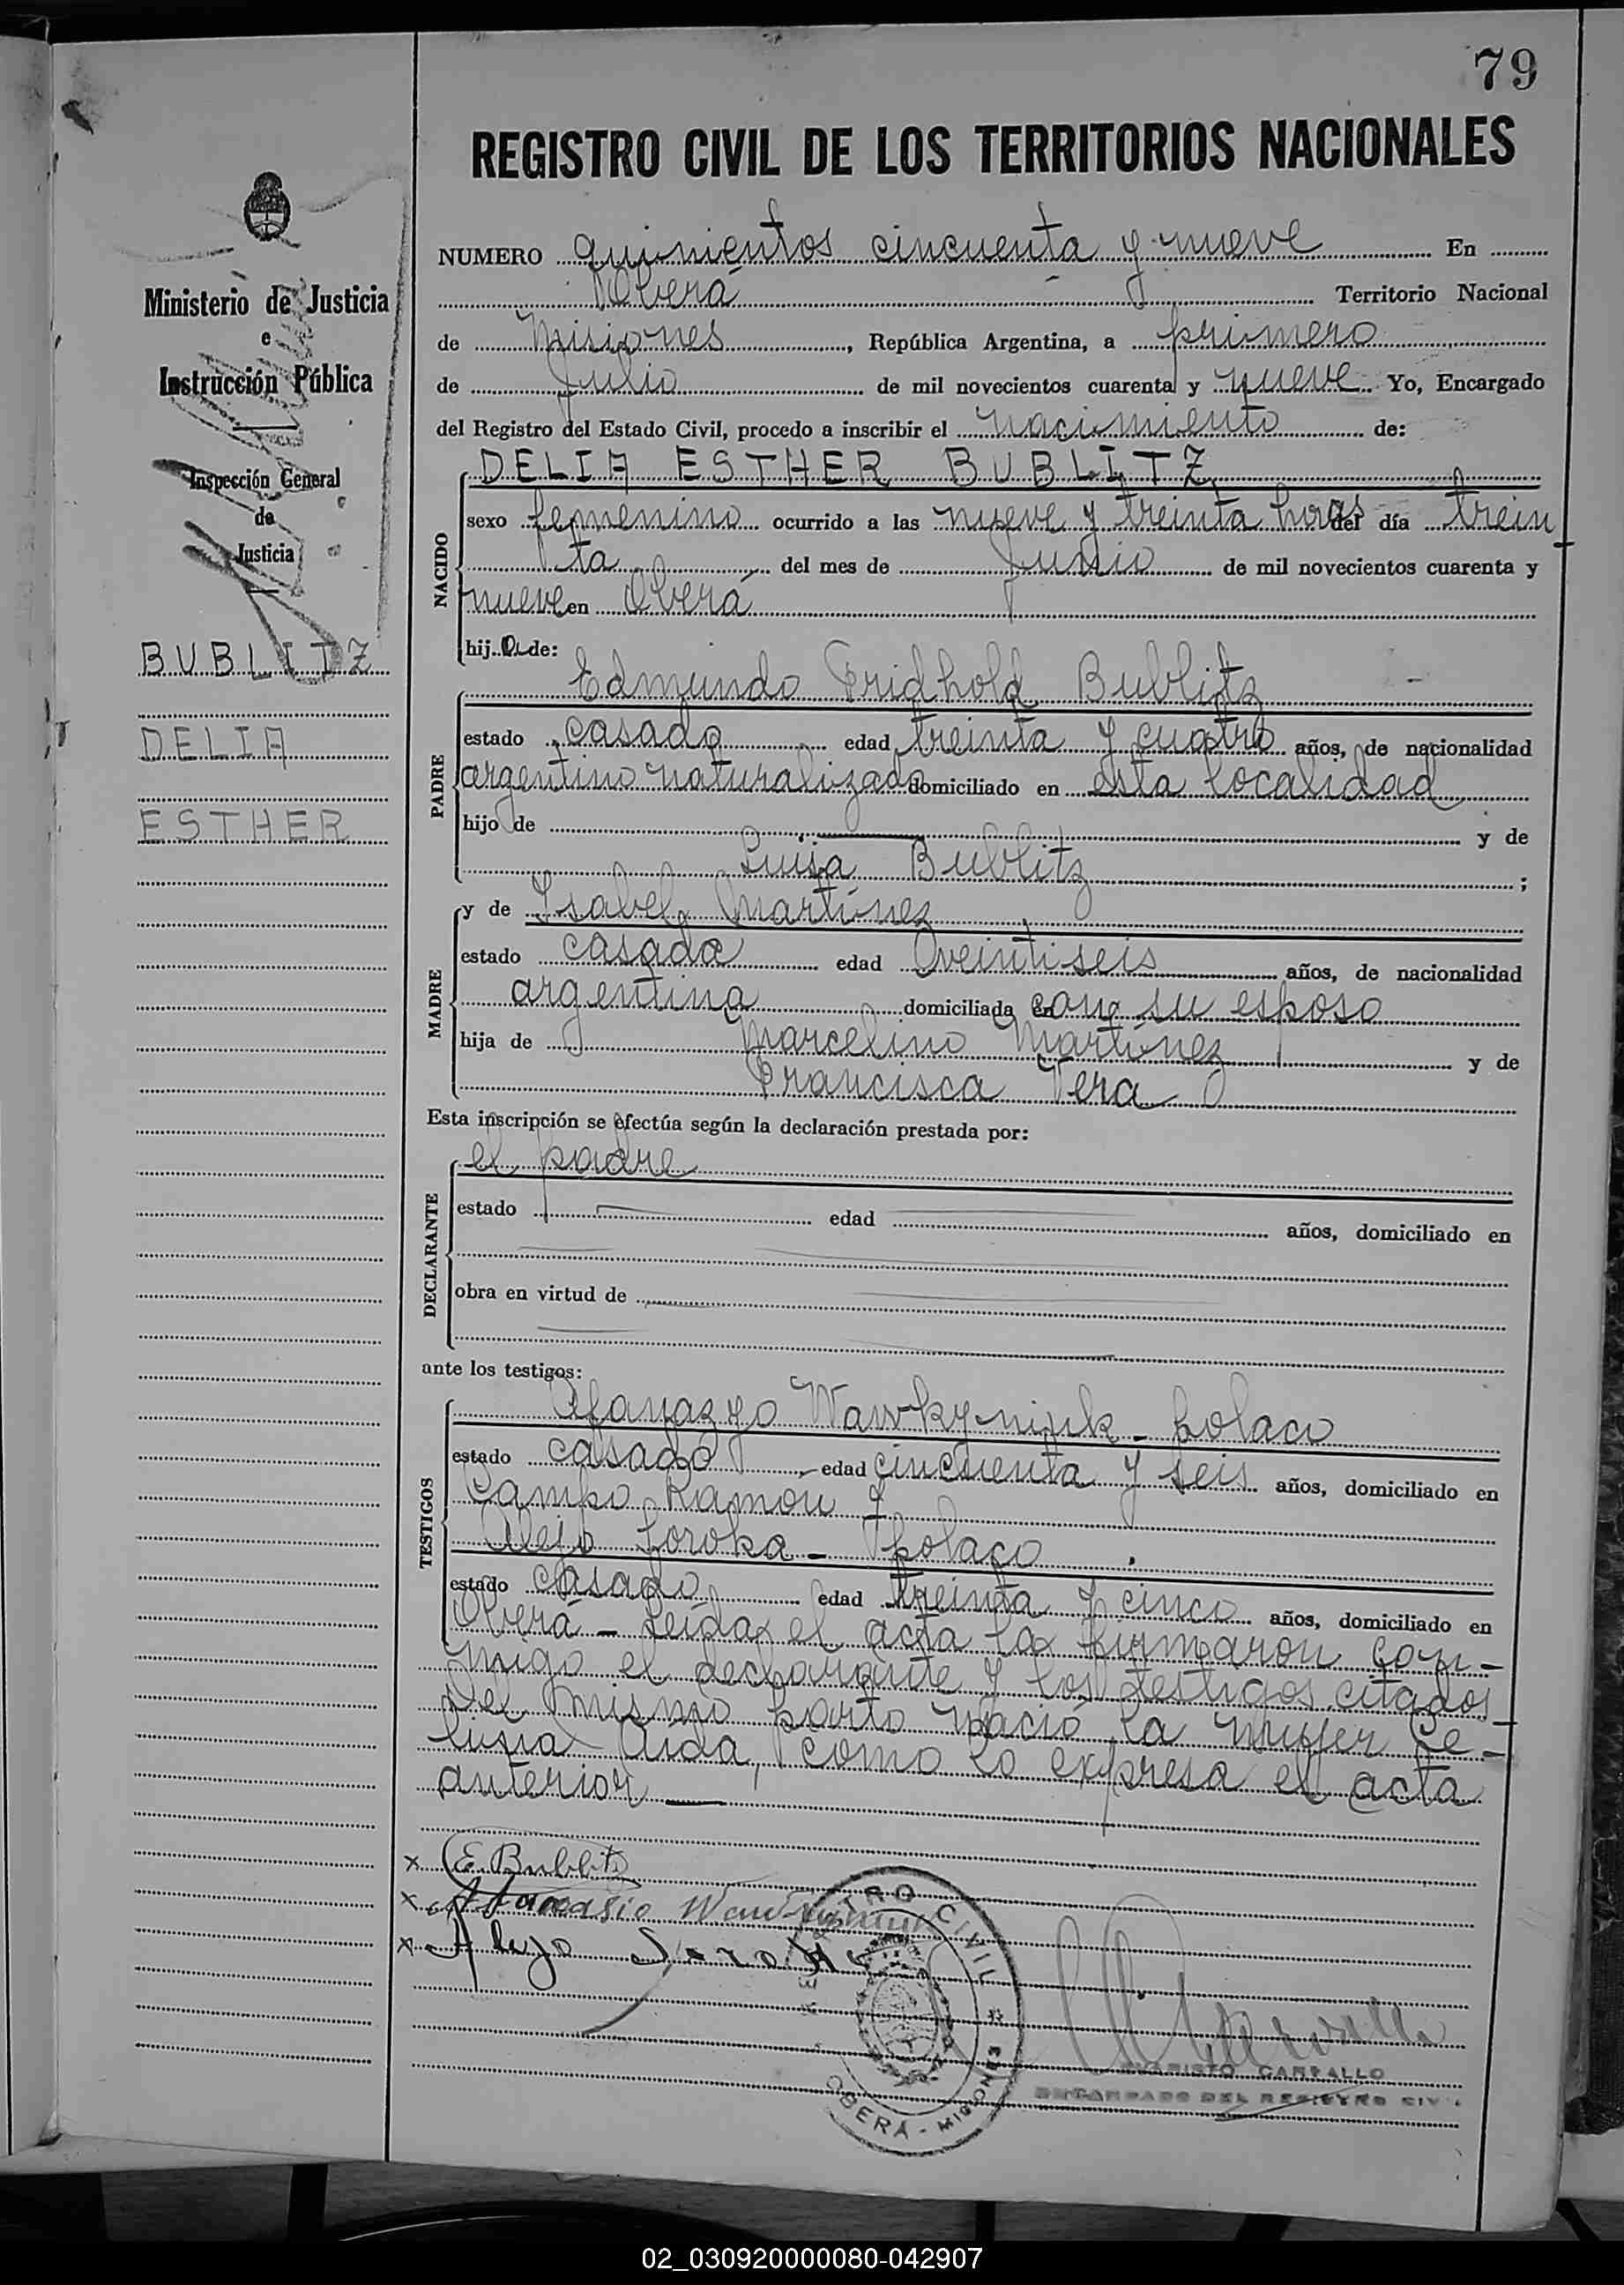 79
REGISTRO CIVIL DE LOS TERRITORIOS NACIONALES
Ministerio de Justicia
e
Instrucción Pública
Inspección General
de
Justicia
BUBLITZ
DELIA
ESTHER
NUMERO quinientos cincuenta y nueve En
Oberá Territorio Nacional
de Misiones, República Argentina, a primero
de Julio de mil novecientos cuarenta y nueve Yo, Encargado
del Registro del Estado Civil, procedo a inscribir el nacimiento de:
NACIDO
DELIA ESTHER BUBLITZ
sexo femenino ocurrido a las nueve y treinta horas del día trein
ta del mes de Junio de mil novecientos cuarenta y
nueve en Oberá
hija de:
PADRE
Edmundo Fridhold Bublitz
estado casado edad treinta y cuatro años, de nacionalidad
argentino naturalizado domiciliado en esta localidad
hijo de y de
Luisa Bublitz ;
MADRE
y de Isabel Martínez
estado casada edad veintiseis años, de nacionalidad
argentina domiciliada con su esposo
hija de Marcelino Martínez y de
Francisca Vera
Esta inscripción se efectúa según la declaración prestada por:
DECLARANTE
el padre
estado edad años, domiciliado en
obra en virtud de
ante los testigos:
TESTIGOS
Polaco
estado casado edad cincuenta y seis años, domiciliado en
Campo Ramon
Alejo Soroka - polaco
estado casado edad treinta y cinco años, domiciliado en
Oberá - Leída el acta la firmaron con-
migo el declarante y los testigos citados
Del mismo parto nació la mujer Ce-
lina Aida, como lo expresa el acta
anterior
x E. Bublitz
x Atanasio
x Alejo Soroka
REGISTRO CIVIL
OBERÁ - MISIONES
EVARISTO CARVALLO
ENCARGADO DEL REGISTRO CIVIL
02_030920000080-042907